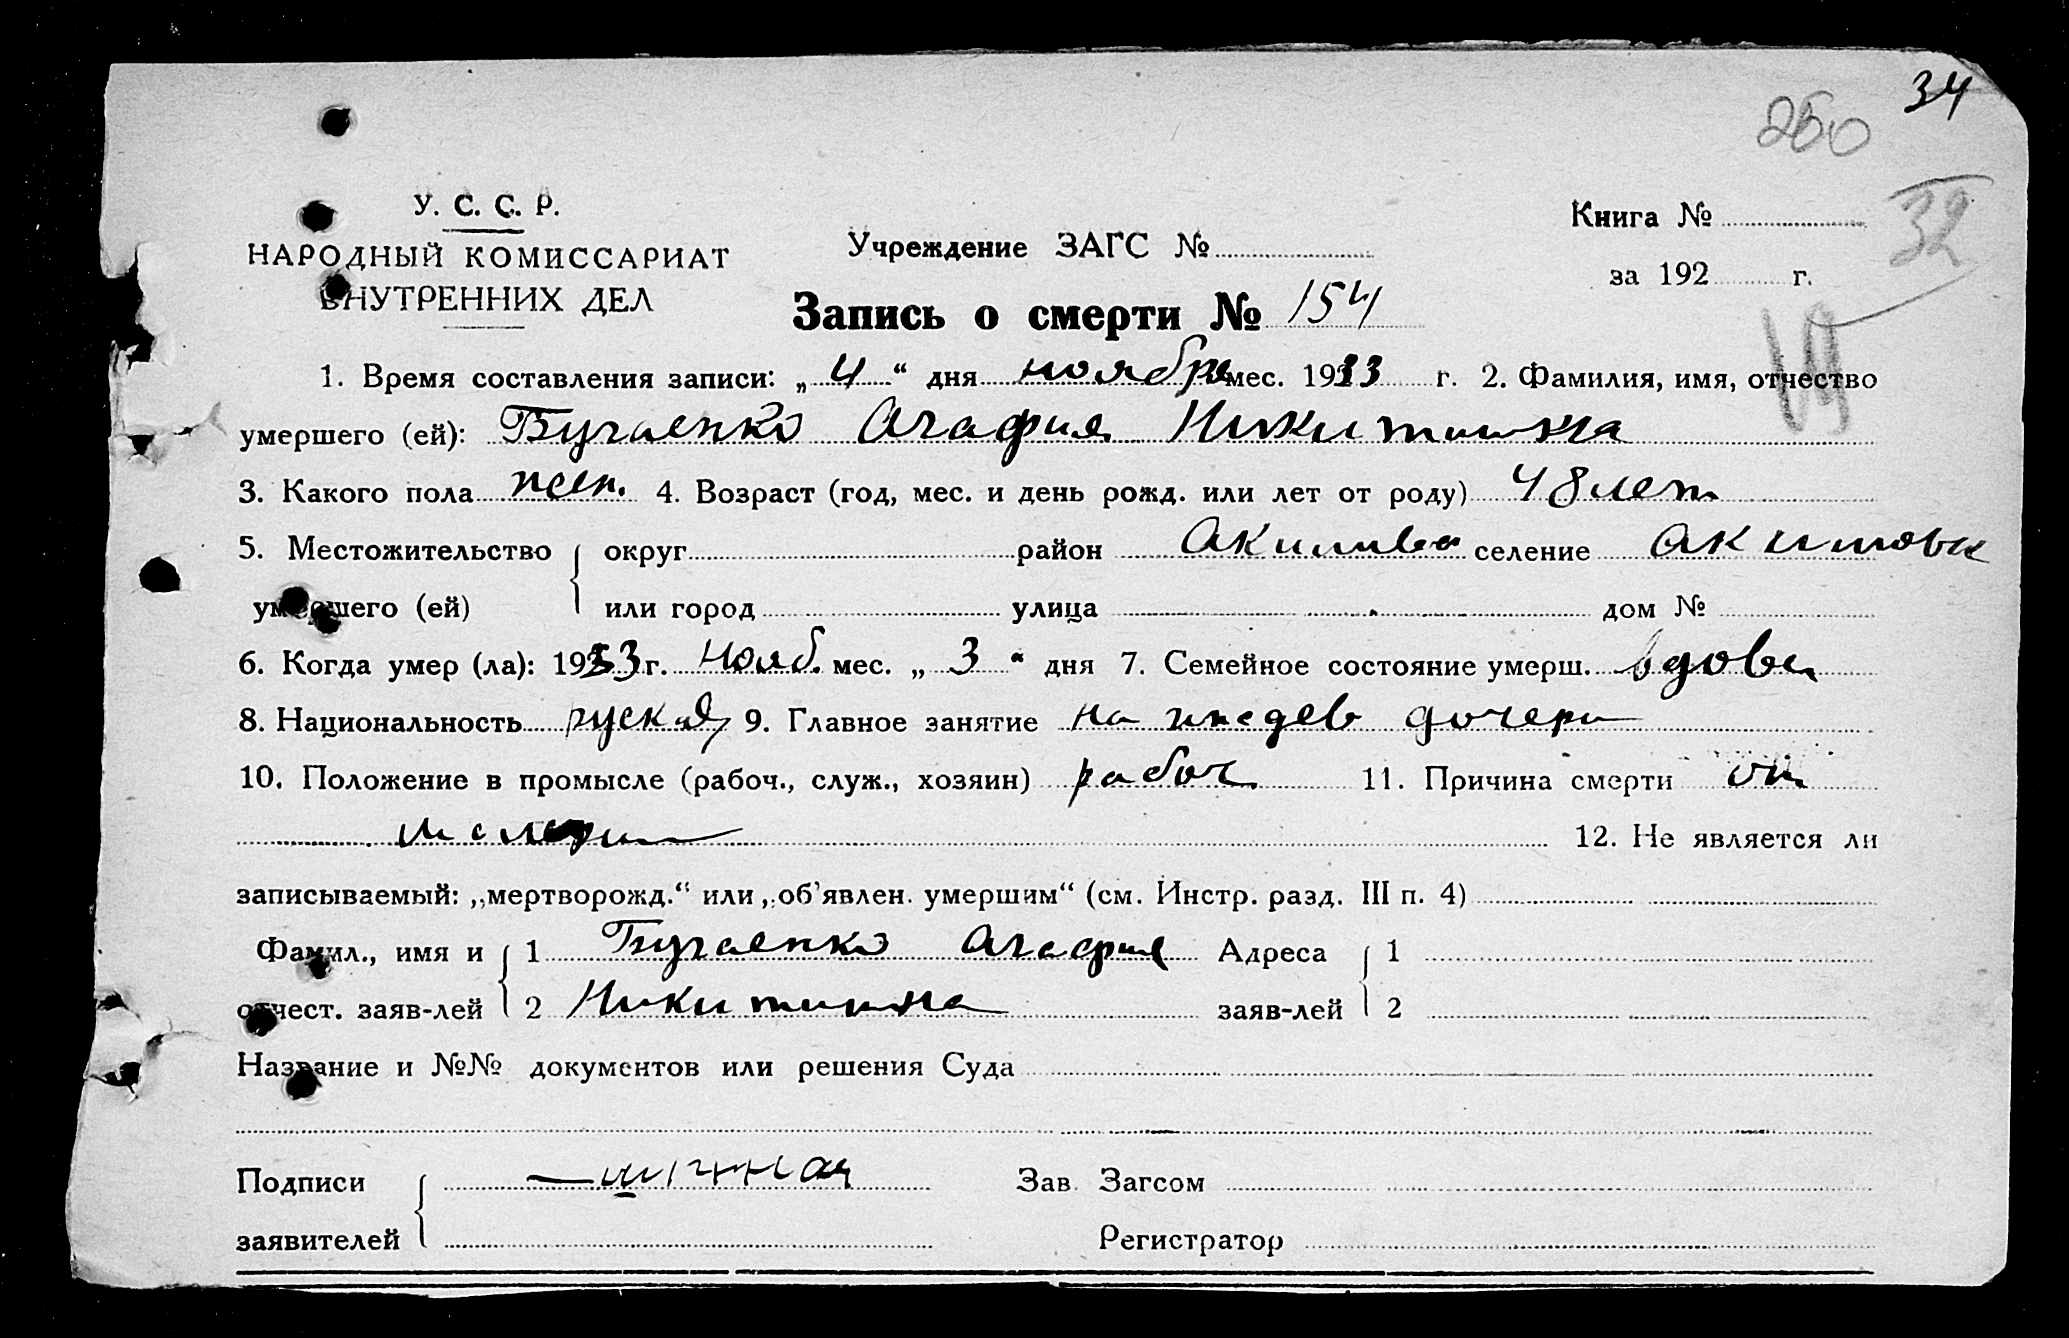 34
260
32
У. С. С. Р.
НАРОДНЫЙ КОМИССАРИАТ
ВНУТРЕННИХ ДЕЛ
Учреждение ЗАГС №
Книга №
за 192 г.
Запись о смерти № 154
1. Время составления записи: „ 4 “ дня ноября мес. 1933 г. 2. Фамилия, имя, отчество
умершего (ей): Бугаенко Агафия Никитишна
3. Какого пола жен. 4. Возраст (год, мес. и день рожд. или лет от роду) 48 лет
5. Местожительство округ район Акимовка селение Акимовка
умершего (ей) или город улица дом №
6. Когда умер (ла): 1933 г. нояб. мес. „ 3 “ дня 7. Семейное состояние умерш. вдова
8. Национальность руская 9. Главное занятие на иждев дочери
10. Положение в промысле (рабоч., служ., хозяин) рабоч. 11. Причина смерти от
малярии 12. Не является ли
записываемый: „мертворожд.“ или „об'явлен. умершим“ (см. Инстр. разд. III п. 4)
Фамил., имя и 1 Бугаенко Агафия Адреса 1
отчест. заяв-лей 2 Никитишна заяв-лей 2
Название и №№ документов или решения Суда
Подписи Зав. Загсом
заявителей Регистратор